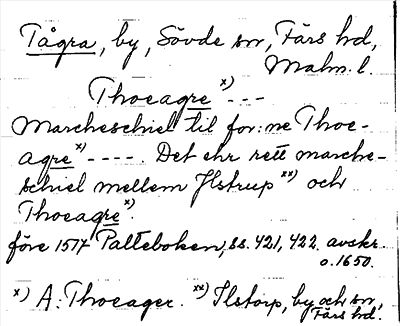 Tågra, by, Sövde sn, Färs hd,
Malm. l.
Thoeagre x) ---
Marcheschiel til for:ne Thoe-
agre x) ----. Det ehr rett marche-
schiel mellem Jlstrup xx) och
Thoeagre x).
före 1517 Palteboken, ss. 421, 422. avskr.
o. 1650.
x) A: Thoeager. xx) Ilstorp, by och sn,
Färs hd.